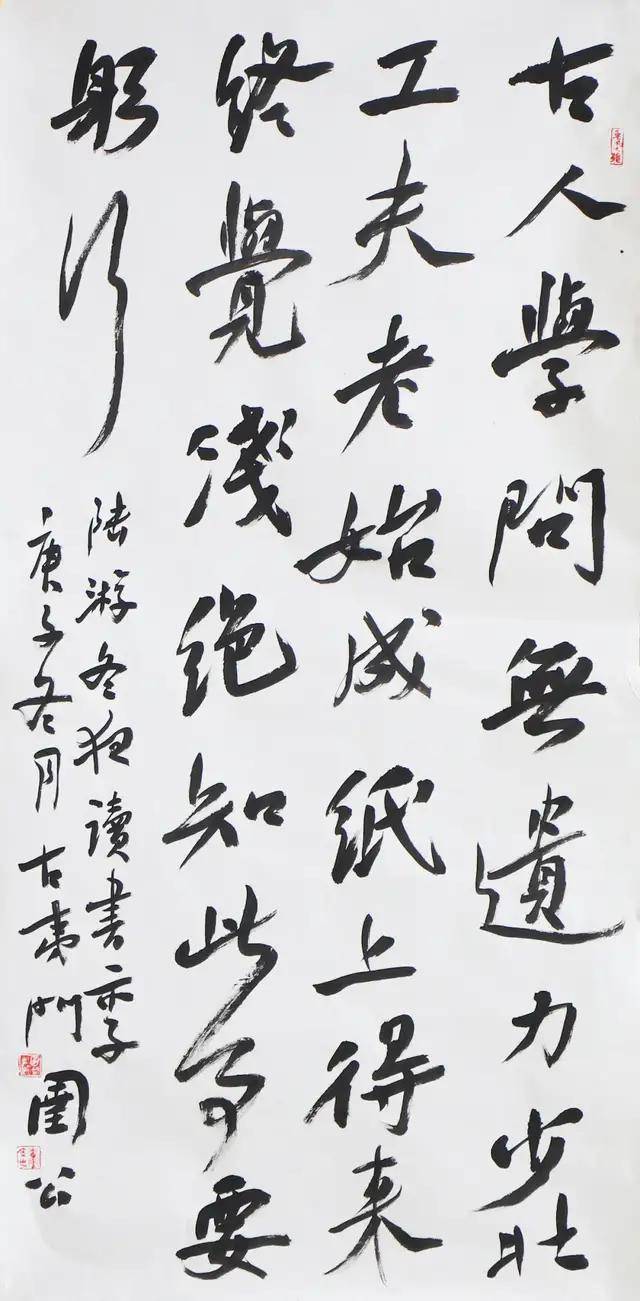 古人學問無遺力少壯
工夫老始成紙上得来
終覺淺絕知此事要
躬行
陆游冬夜讀書示子
庚子冬月古夷門圉公